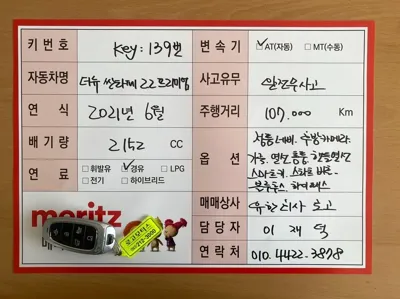 키 번호 Key: 139번
변속기 ☑AT(자동) □MT(수동)
자동차명 더뉴 싼타페 2.2 프리미엄
사고유무 완전무사고
연식 2021년 6월
주행거리 107,000 Km
배기량 2152 CC
옵션 정품네비. 후방카메라
가능. 열선통풍. 핸들열선
스마트키. 스마트
하이패스
연료 □휘발유 ☑경유 □LPG
□전기 □하이브리드
매매상사 유한회사 로고
moritz
담당자 이재덕
로고모터스
212-3000
연락처 010.4422.3878